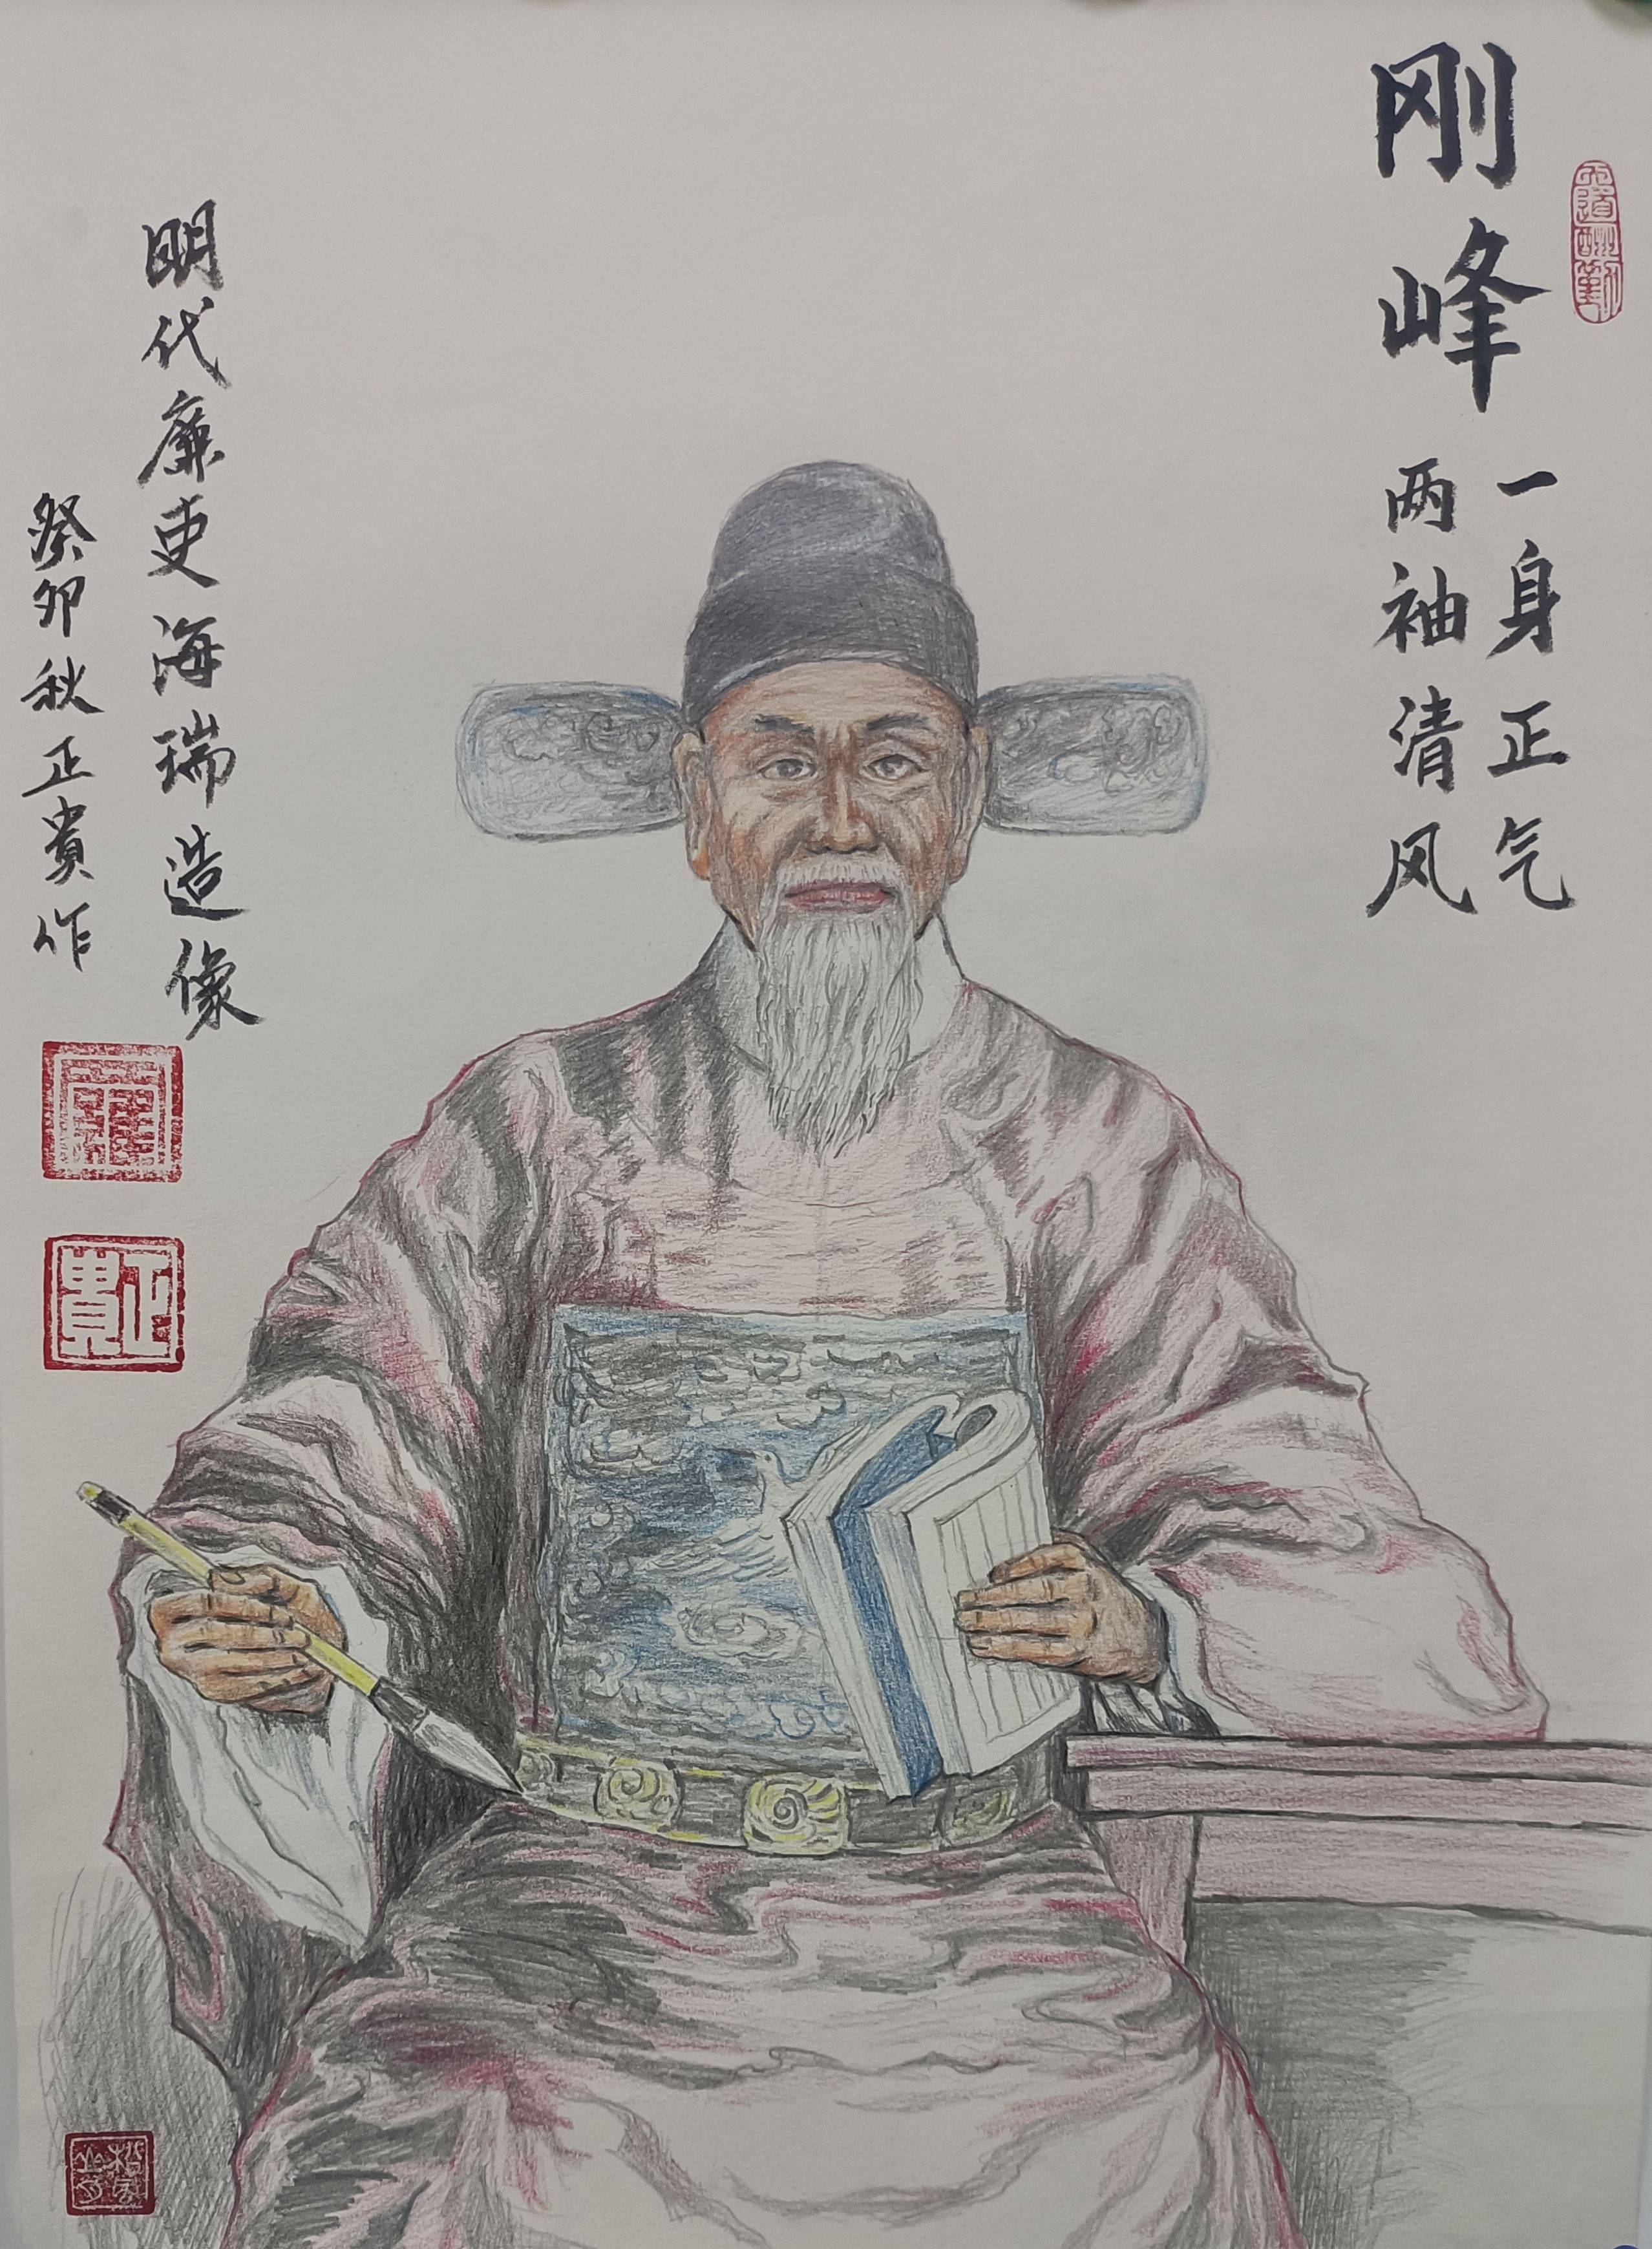 刚峰
一身正气
两袖清风
天道酬勤
明代廉吏海瑞造像
癸卯秋正贵作
正貴